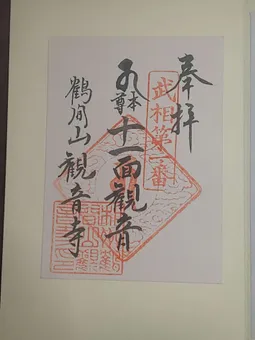 奉拝
武相第一番
本尊十一面観音
鶴間山観音寺